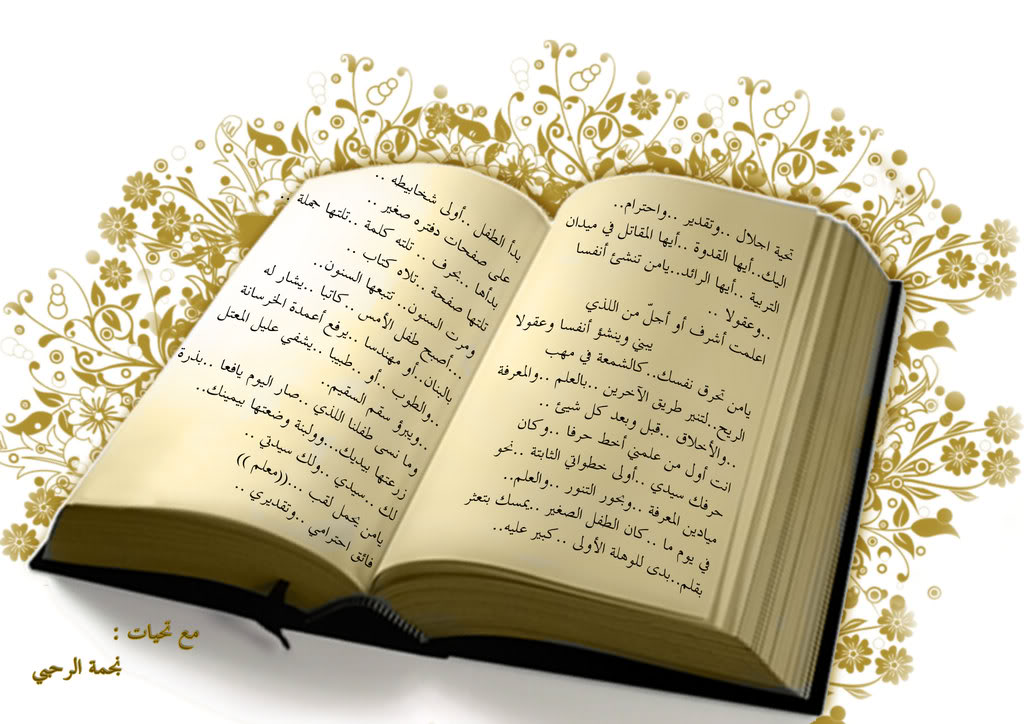 تحية اجلال ..وتقدير ..واحترام..
اليك..أيها القدوة ..أيها المقاتل في ميدان
التربية ..أيها الرائد..يامن تنشئ أنفسا
..وعقولا ..
اعلمت أشرف أو أجلّ من اللذي
يبني وينشؤ أنفسا وعقولا
يامن تحرق نفسك..كالشمعة في مهب
الريح..لتنير طريق الآخرين ..بالعلم ..والمعرفة
..والأخلاق ..قبل وبعد كل شيئ ..
انت أول من علمني أخط حرفا ..وكان
حرفك سيدي ..أولى خطواتي الثابتة ..نحو
ميادين المعرفة ..ونحور التنور ..والعلم..
في يوم ما ..كان الطفل الصغير ..يمسك بتعثر
بقلم..بدى للوهلة الأولى ..كبير عليه..
بدأ الطفل ..أولى شخابيطه ..
على صفحات دفتره صغير ..
بدأها ..بحرف .. تلته كلمة ..تلتها جملة ..
تلتها صفحة ..تلاه كتاب ..
ومرت السنون.. تتبعها السنون..
...أصبح طفل الأمس ..كاتبا ..يشار له
بالبنان..أو مهندسا ..يرفع أعمدة الخرسانة
..والطوب ..أو ..طبيبا ..يشفي عليل المعتل
..ويبرؤ سقم السقيم..
وما نسى طفلنا اللذي ..صار اليوم يافعا ..بذرة
زرعتها بيديك...وولبنة وضعتها بيمينك..
لك ..سيدي ..ولك سيدتي ..
يامن يحمل لقب ...((معلم ))
فائق احترامي ..وتقديري ..
مع تحيات :
نجمة الرحبي